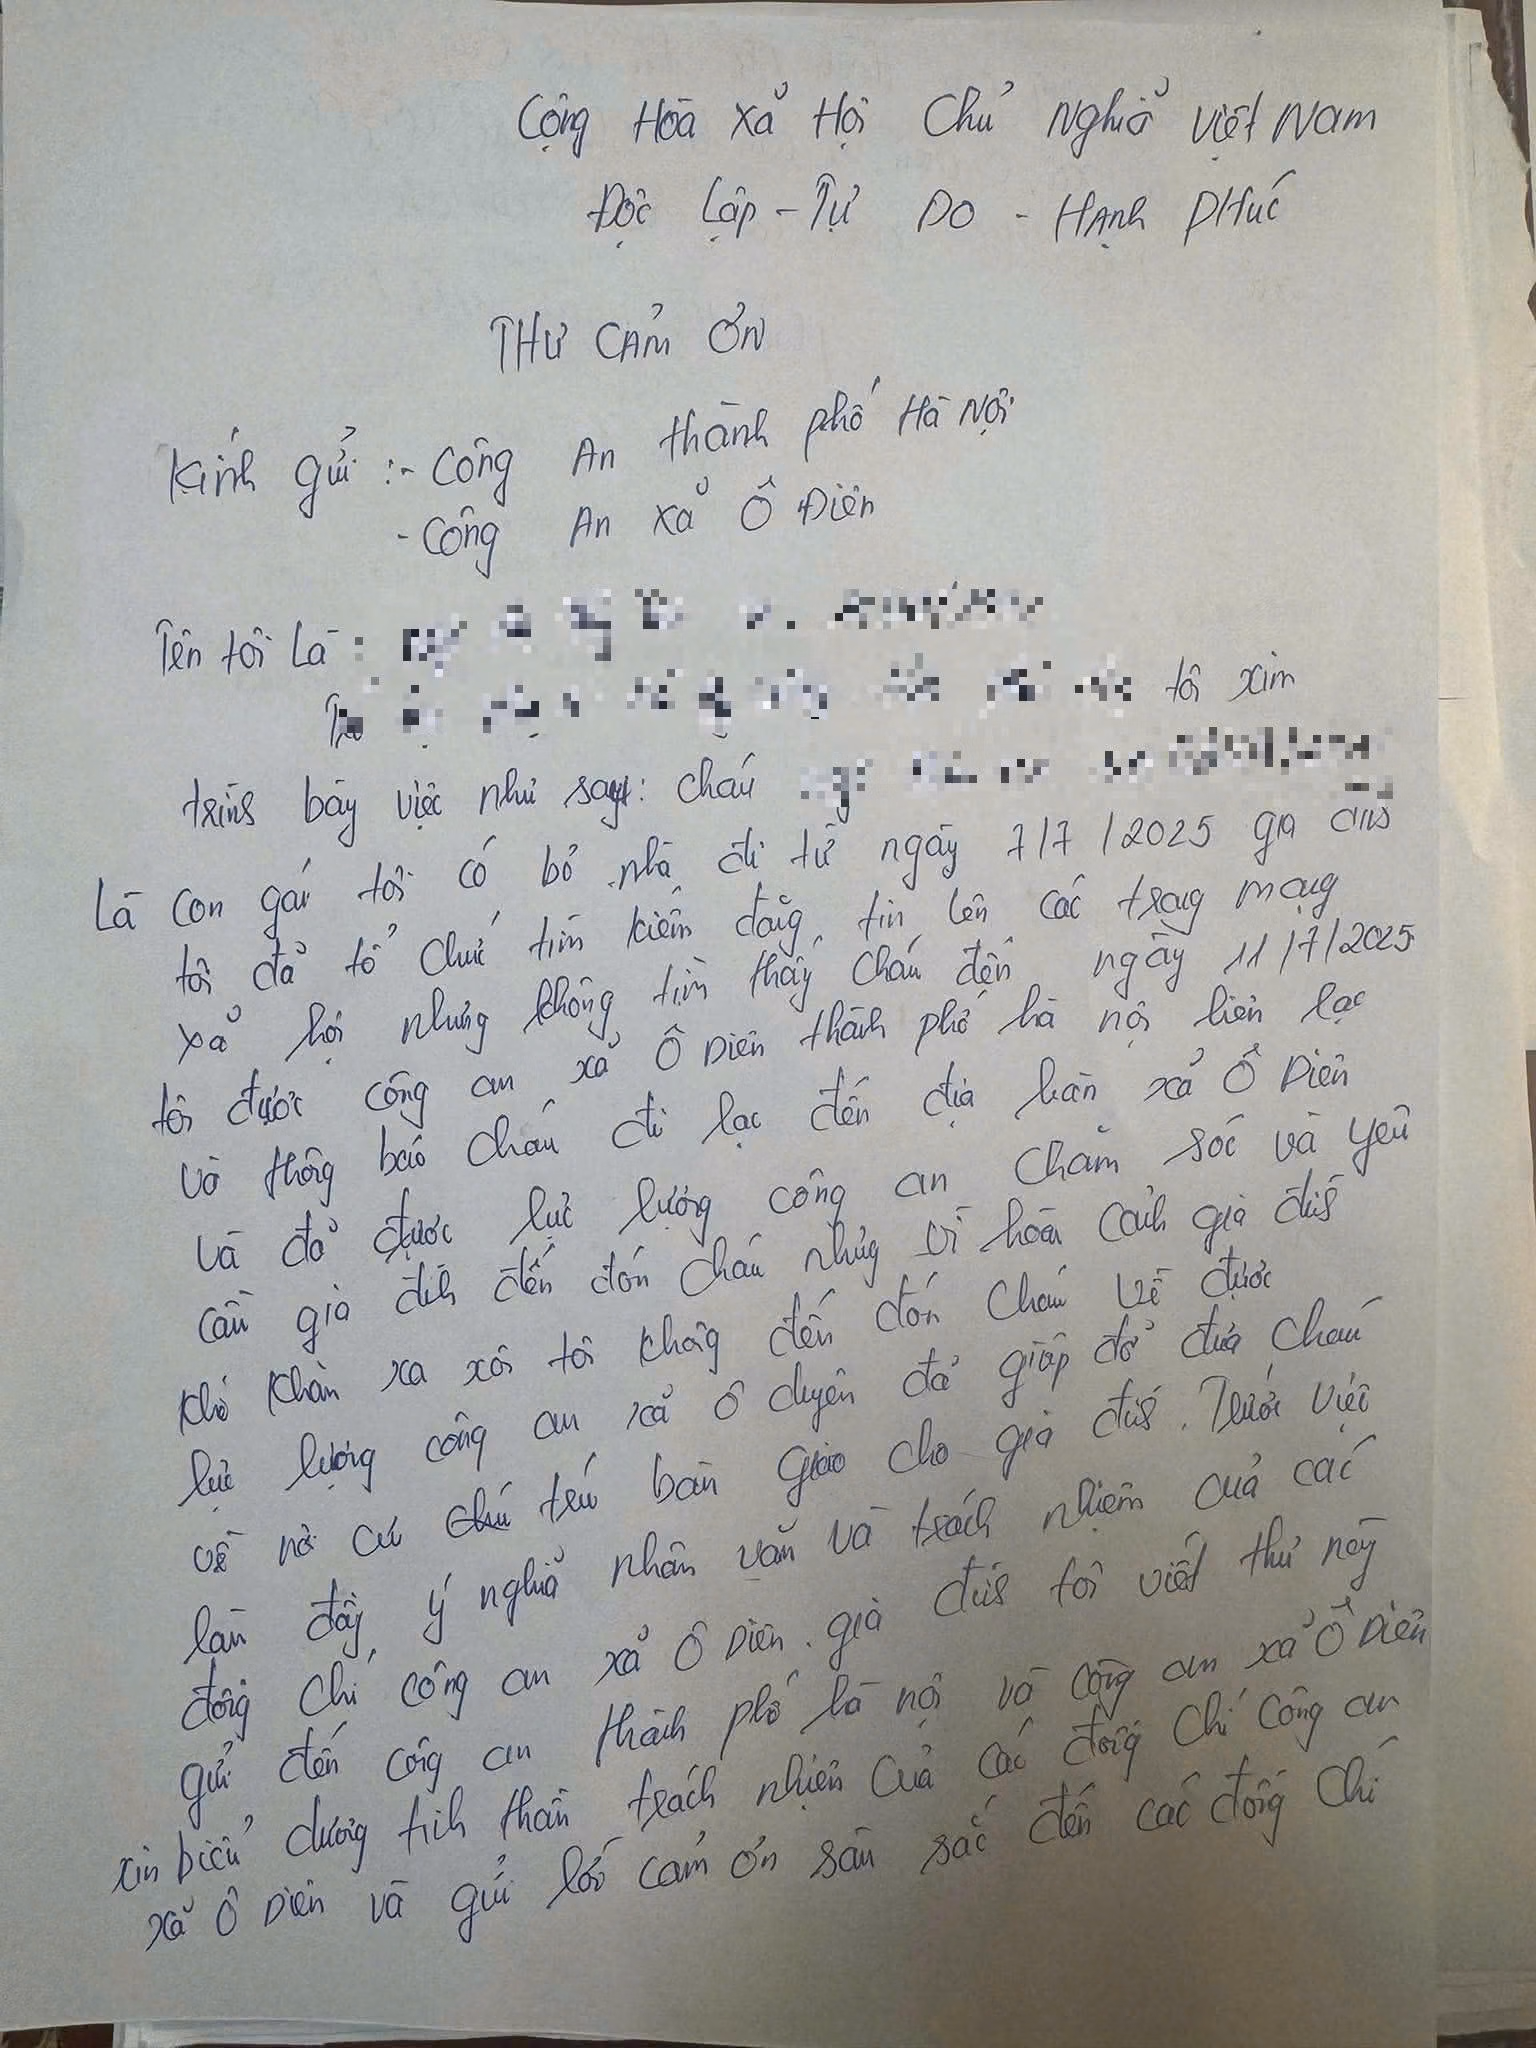 Cộng Hòa Xã Hội Chủ Nghiã Việt Nam
Độc Lập - Tự Do - Hạnh Phúc
THƯ CẢM ƠN
Kính gửi :- Công An thành phố Hà Nội
- Công An xã Ô Điên
Tên tôi Là :
tôi xin
trình bày việc như sau: cháu
Là con gái tôi có bỏ nhà đi từ ngày 7/7/2025 gia đình
tôi đã tổ chức tìm kiếm đăng tin lên các trang mạng
xã hội nhưng không tìm thấy cháu đến ngày 11/7/2025
tôi được công an xã Ô Diên thành phố hà nội liên lạc
và thông báo cháu đi lạc đến địa bàn xã Ô Diên
và đã được lực lượng công an chăm sóc và yêu
cầu gia đình đến đón cháu nhưng vì hoàn cảnh gia đình
khó khăn xa xôi tôi không đến đón cháu về được
lực lượng công an xã Ô duyên đã giúp đỡ đưa cháu
về nơi cư trú bàn giao cho gia đình. Trước việc
làm đầy ý nghiã nhân văn và trách nhiệm của các
đồng chí công an xã Ô Diên. gia đình tôi viết thư này
gửi đến công an thành phố hà nội và công an xã Ô Diên
xin biểu dương tinh thần trách nhiệm của các đồng chí công an
xã Ô Diên và gửi lời cảm ơn sâu sắc đến các đồng chí